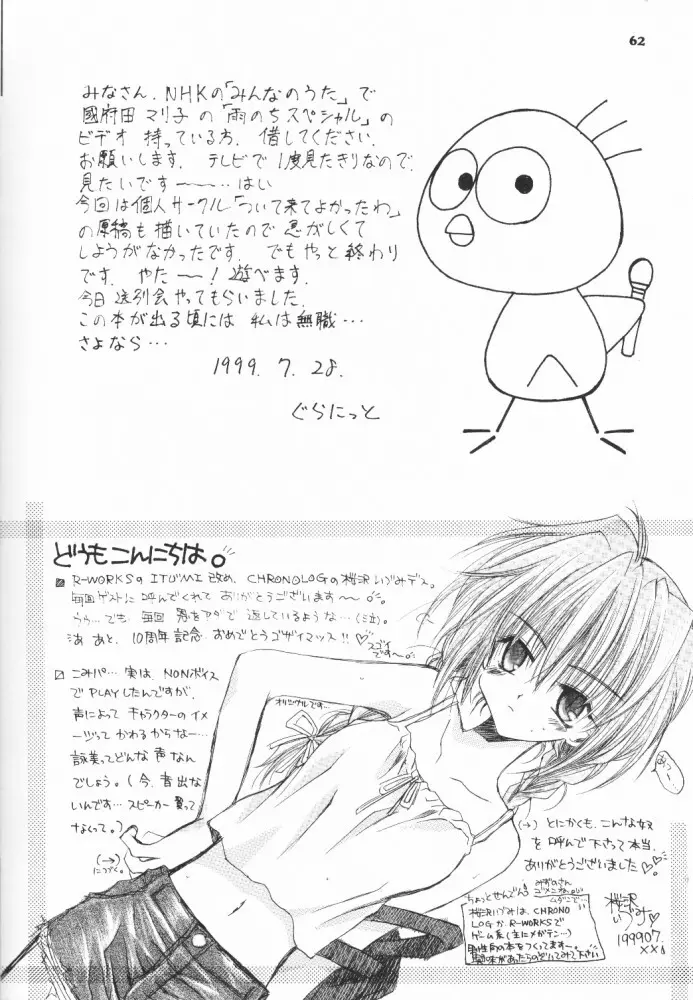 62
みなさん、NHKの「みんなのうた」で
國府田マリ子の「雨のちスペシャル」の
ビデオ持っている方、借してください。
お願いします。テレビで1度見たきりなので、
見たいです〜〜…はい
今回は個人サークル「ついて来てよかったわ」
の原稿も描いていたので忽がしくて
しょうがなかったです。でもやっと終わり
です。やた〜!遊べます。
今日送別会やってもらいました。
この本が出る頃には私は無職…
さよなら…
1999.7.28.
ぐらにっと
どうもこんにちは。
R-WORKSのITUMI改め、CHRONOLOGの桜沢いづみデス。
毎回ゲストに呼んでくれてありがとうございます〜。
うぅ…でも、毎回恩をアダで返しているような…(泣)
あ、あと、10周年記念おめでとうゴザイマッス!!♡
スゴイ
です〜。
こみパ…実はNONボイス
でPLAYしたんですが、
声によってキャラクターのイメ
ージってかわるからなー…
詠美ってどんな声なん
でしょう。(今、音出な
いんです…スピーカー買って
なくって。)
(→)
につづく。
オリジナルです…
(→)とにかくも、こんな奴
を呼んで下さって本当、
ありがとうございました♡♡
ちょっとせんでん。
みずのさん
ゴメンね。
桜沢いづみは、CHRONO
LOGか、R-WORKSで
ゲーム系(主にメガテン…)
桜沢
いづみ♡
199907.
××